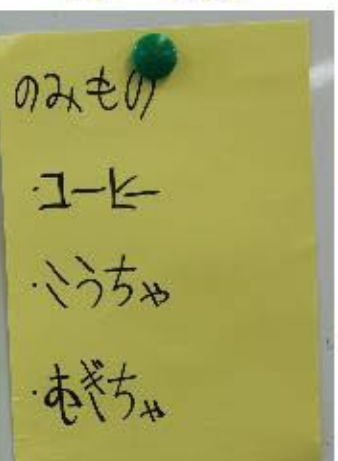 のみもの
・コーヒー
・こうちゃ
・むぎちゃ